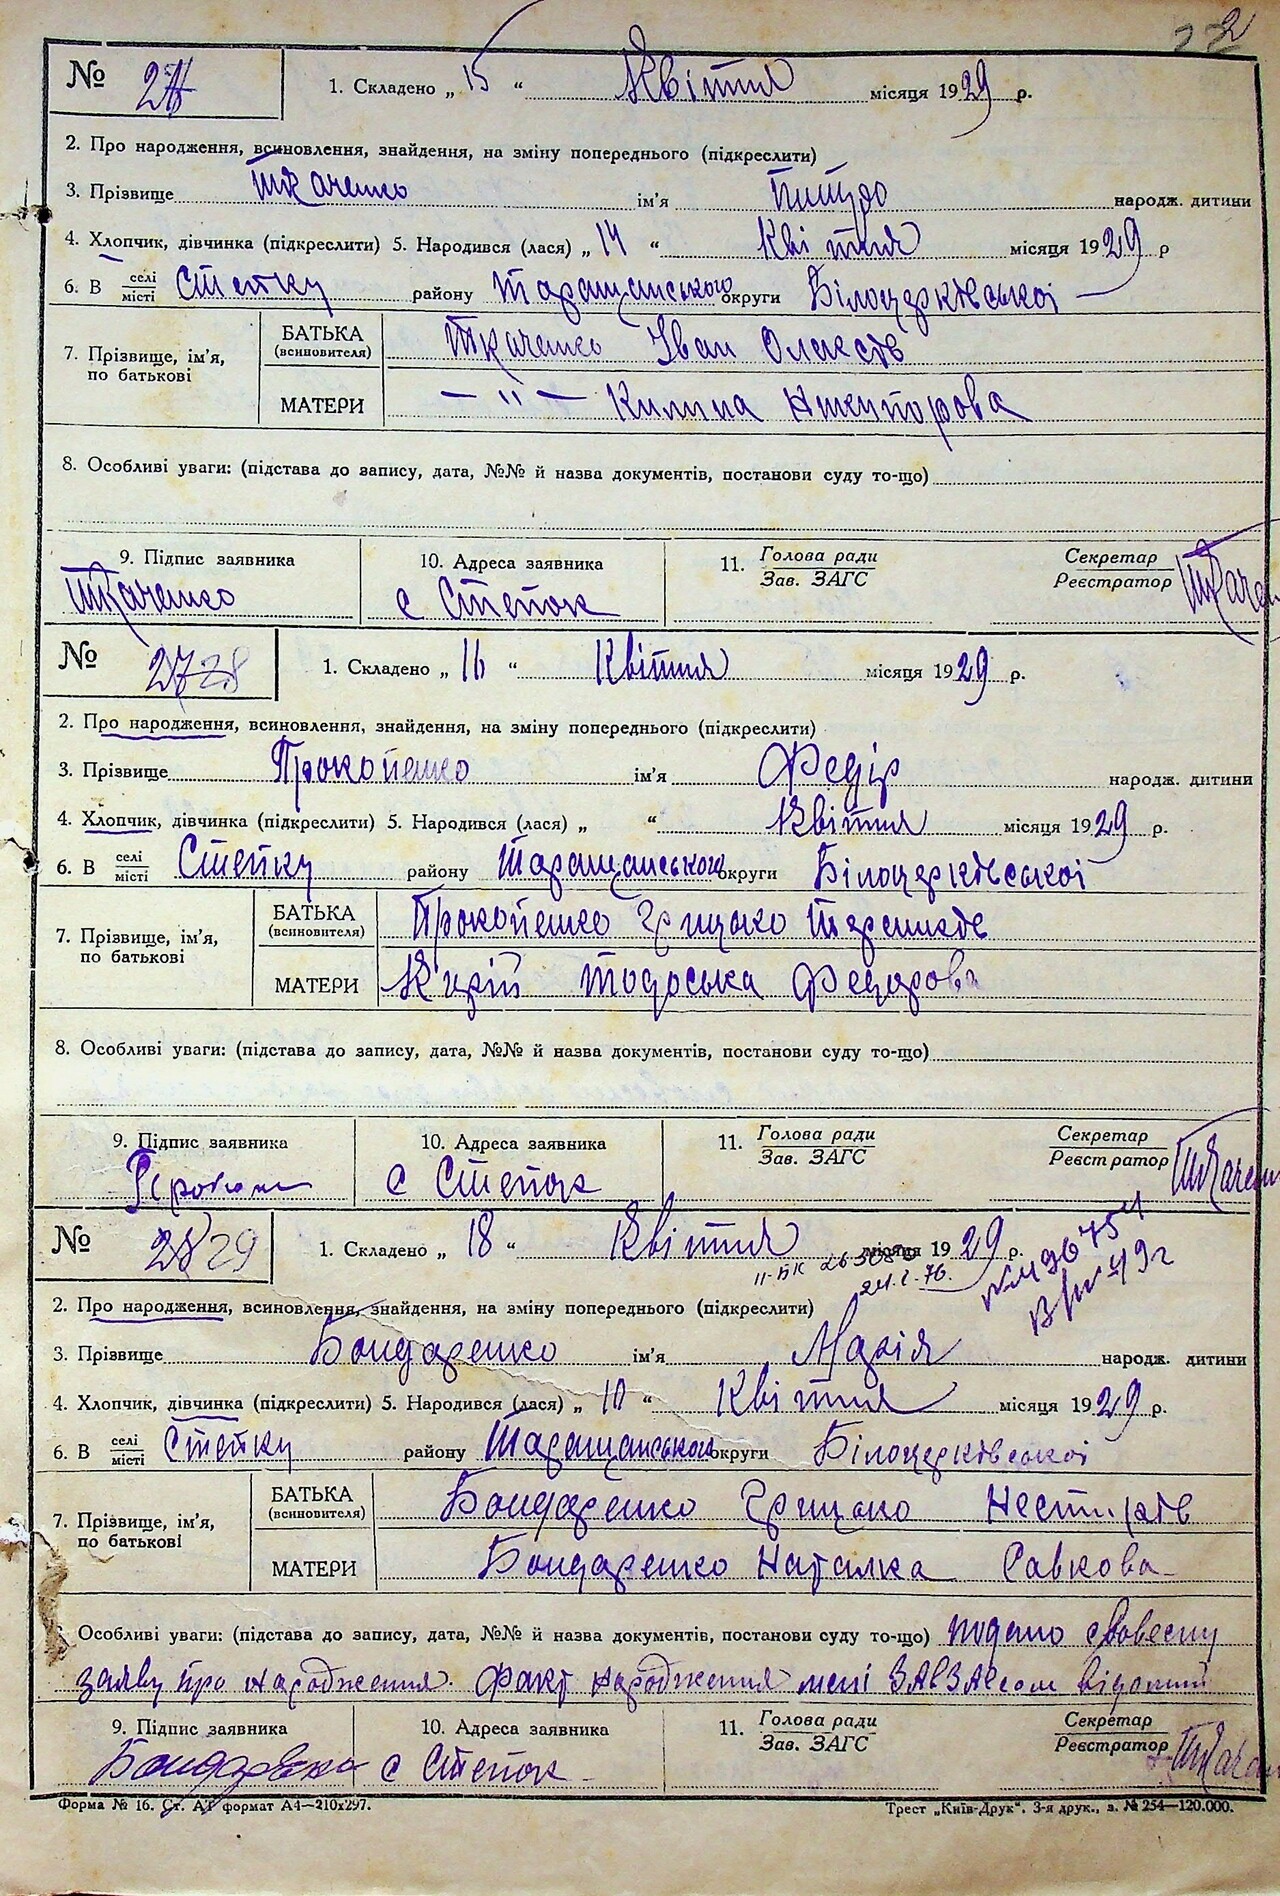 22
№ 27
1. Складено „ 15 “ Квітня місяця 1929 р.
2. Про народження, всиновлення, знайдення, на зміну попереднього (підкреслити)
3. Прізвище Ткаченко ім'я народж. дитини
4. Хлопчик, дівчинка (підкреслити) 5. Народився (лася) „ 14 “ Квітня місяця 1929 р
6. В селі/місті Степку району Таращанського округи Білоцерківської
7. Прізвище, ім'я, по батькові
БАТЬКА (всиновителя) Ткаченко Іван Олексів
МАТЕРИ — " — Килина Никипорова
8. Особливі уваги: (підстава до запису, дата, №№ й назва документів, постанови суду то-що)
9. Підпис заявника 10. Адреса заявника 11. Голова ради / Зав. ЗАГС Секретар / Реєстратор
Ткаченко с Степок Ткачен
№ 27 28
1. Складено „ 16 “ Квітня місяця 1929 р.
2. Про народження, всиновлення, знайдення, на зміну попереднього (підкреслити)
3. Прізвище Прокопенко ім'я Федір народж. дитини
4. Хлопчик, дівчинка (підкреслити) 5. Народився (лася) „ “ Квітня місяця 1929 р.
6. В селі/місті Степку району Таращанського округи Білоцерківської
7. Прізвище, ім'я, по батькові
БАТЬКА (всиновителя) Прокопенко Грицько
МАТЕРИ Тодоська Федорова
8. Особливі уваги: (підстава до запису, дата, №№ й назва документів, постанови суду то-що)
9. Підпис заявника 10. Адреса заявника 11. Голова ради / Зав. ЗАГС Секретар / Реєстратор
с Степок Ткачен
№ 28 29
1. Складено „ 18 “ Квітня місяця 1929 р.
II-БК 263080
24.I-76.
2. Про народження, всиновлення, знайдення, на зміну попереднього (підкреслити)
3. Прізвище Бондаренко ім'я Марія народж. дитини
4. Хлопчик, дівчинка (підкреслити) 5. Народився (лася) „ 10 “ Квітня місяця 1929 р.
6. В селі/місті Степку району Таращанського округи Білоцерківської
7. Прізвище, ім'я, по батькові
БАТЬКА (всиновителя) Бондаренко Грицько
МАТЕРИ Бондаренко Наталка Савкова
Особливі уваги: (підстава до запису, дата, №№ й назва документів, постанови суду то-що) подано словесну
заяву про народження. Факт народження мені ЗАВЗАГсом відомий
9. Підпис заявника 10. Адреса заявника 11. Голова ради / Зав. ЗАГС Секретар / Реєстратор
с Степок Ткачен
Форма № 16. Ст. АТ формат А4—210х297. Трест „Київ-Друк“. 3-я друк., з. № 254—120.000.